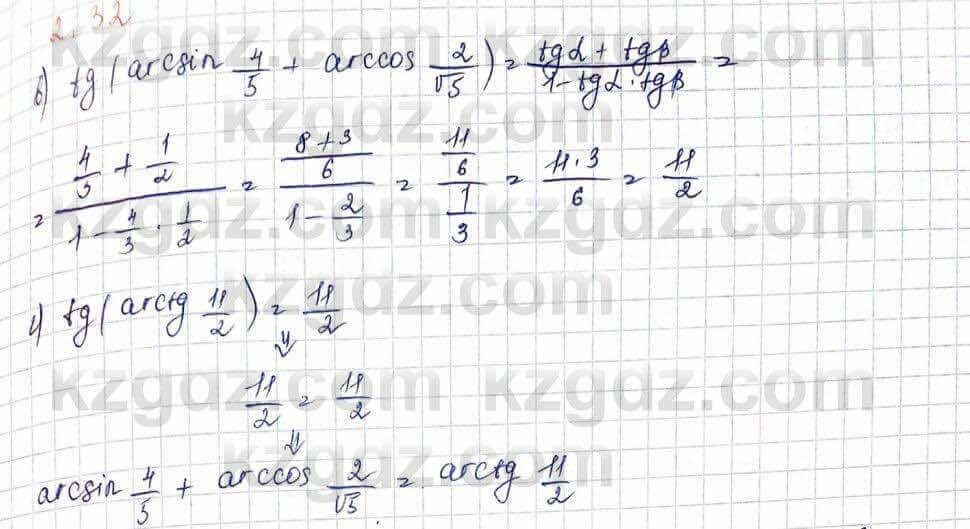 2.32
б) tg(arcsin 4/5 + arccos 2/√5) = (tgα + tgβ)/(1 - tgα · tgβ) =
= (4/3 + 1/2)/(1 - 4/3 · 1/2) = ((8+3)/6)/(1 - 2/3) = (11/6)/(1/3) = (11·3)/6 = 11/2
tg(arctg 11/2) = 11/2
⇓
11/2 = 11/2
⇓
arcsin 4/5 + arccos 2/√5 = arctg 11/2
kzgdz.com
kzgdz.com
kzgdz.com
kzgdz.com
kzgdz.com
kzgdz.com
kzgdz.com
kzgdz.com
kzgdz.com